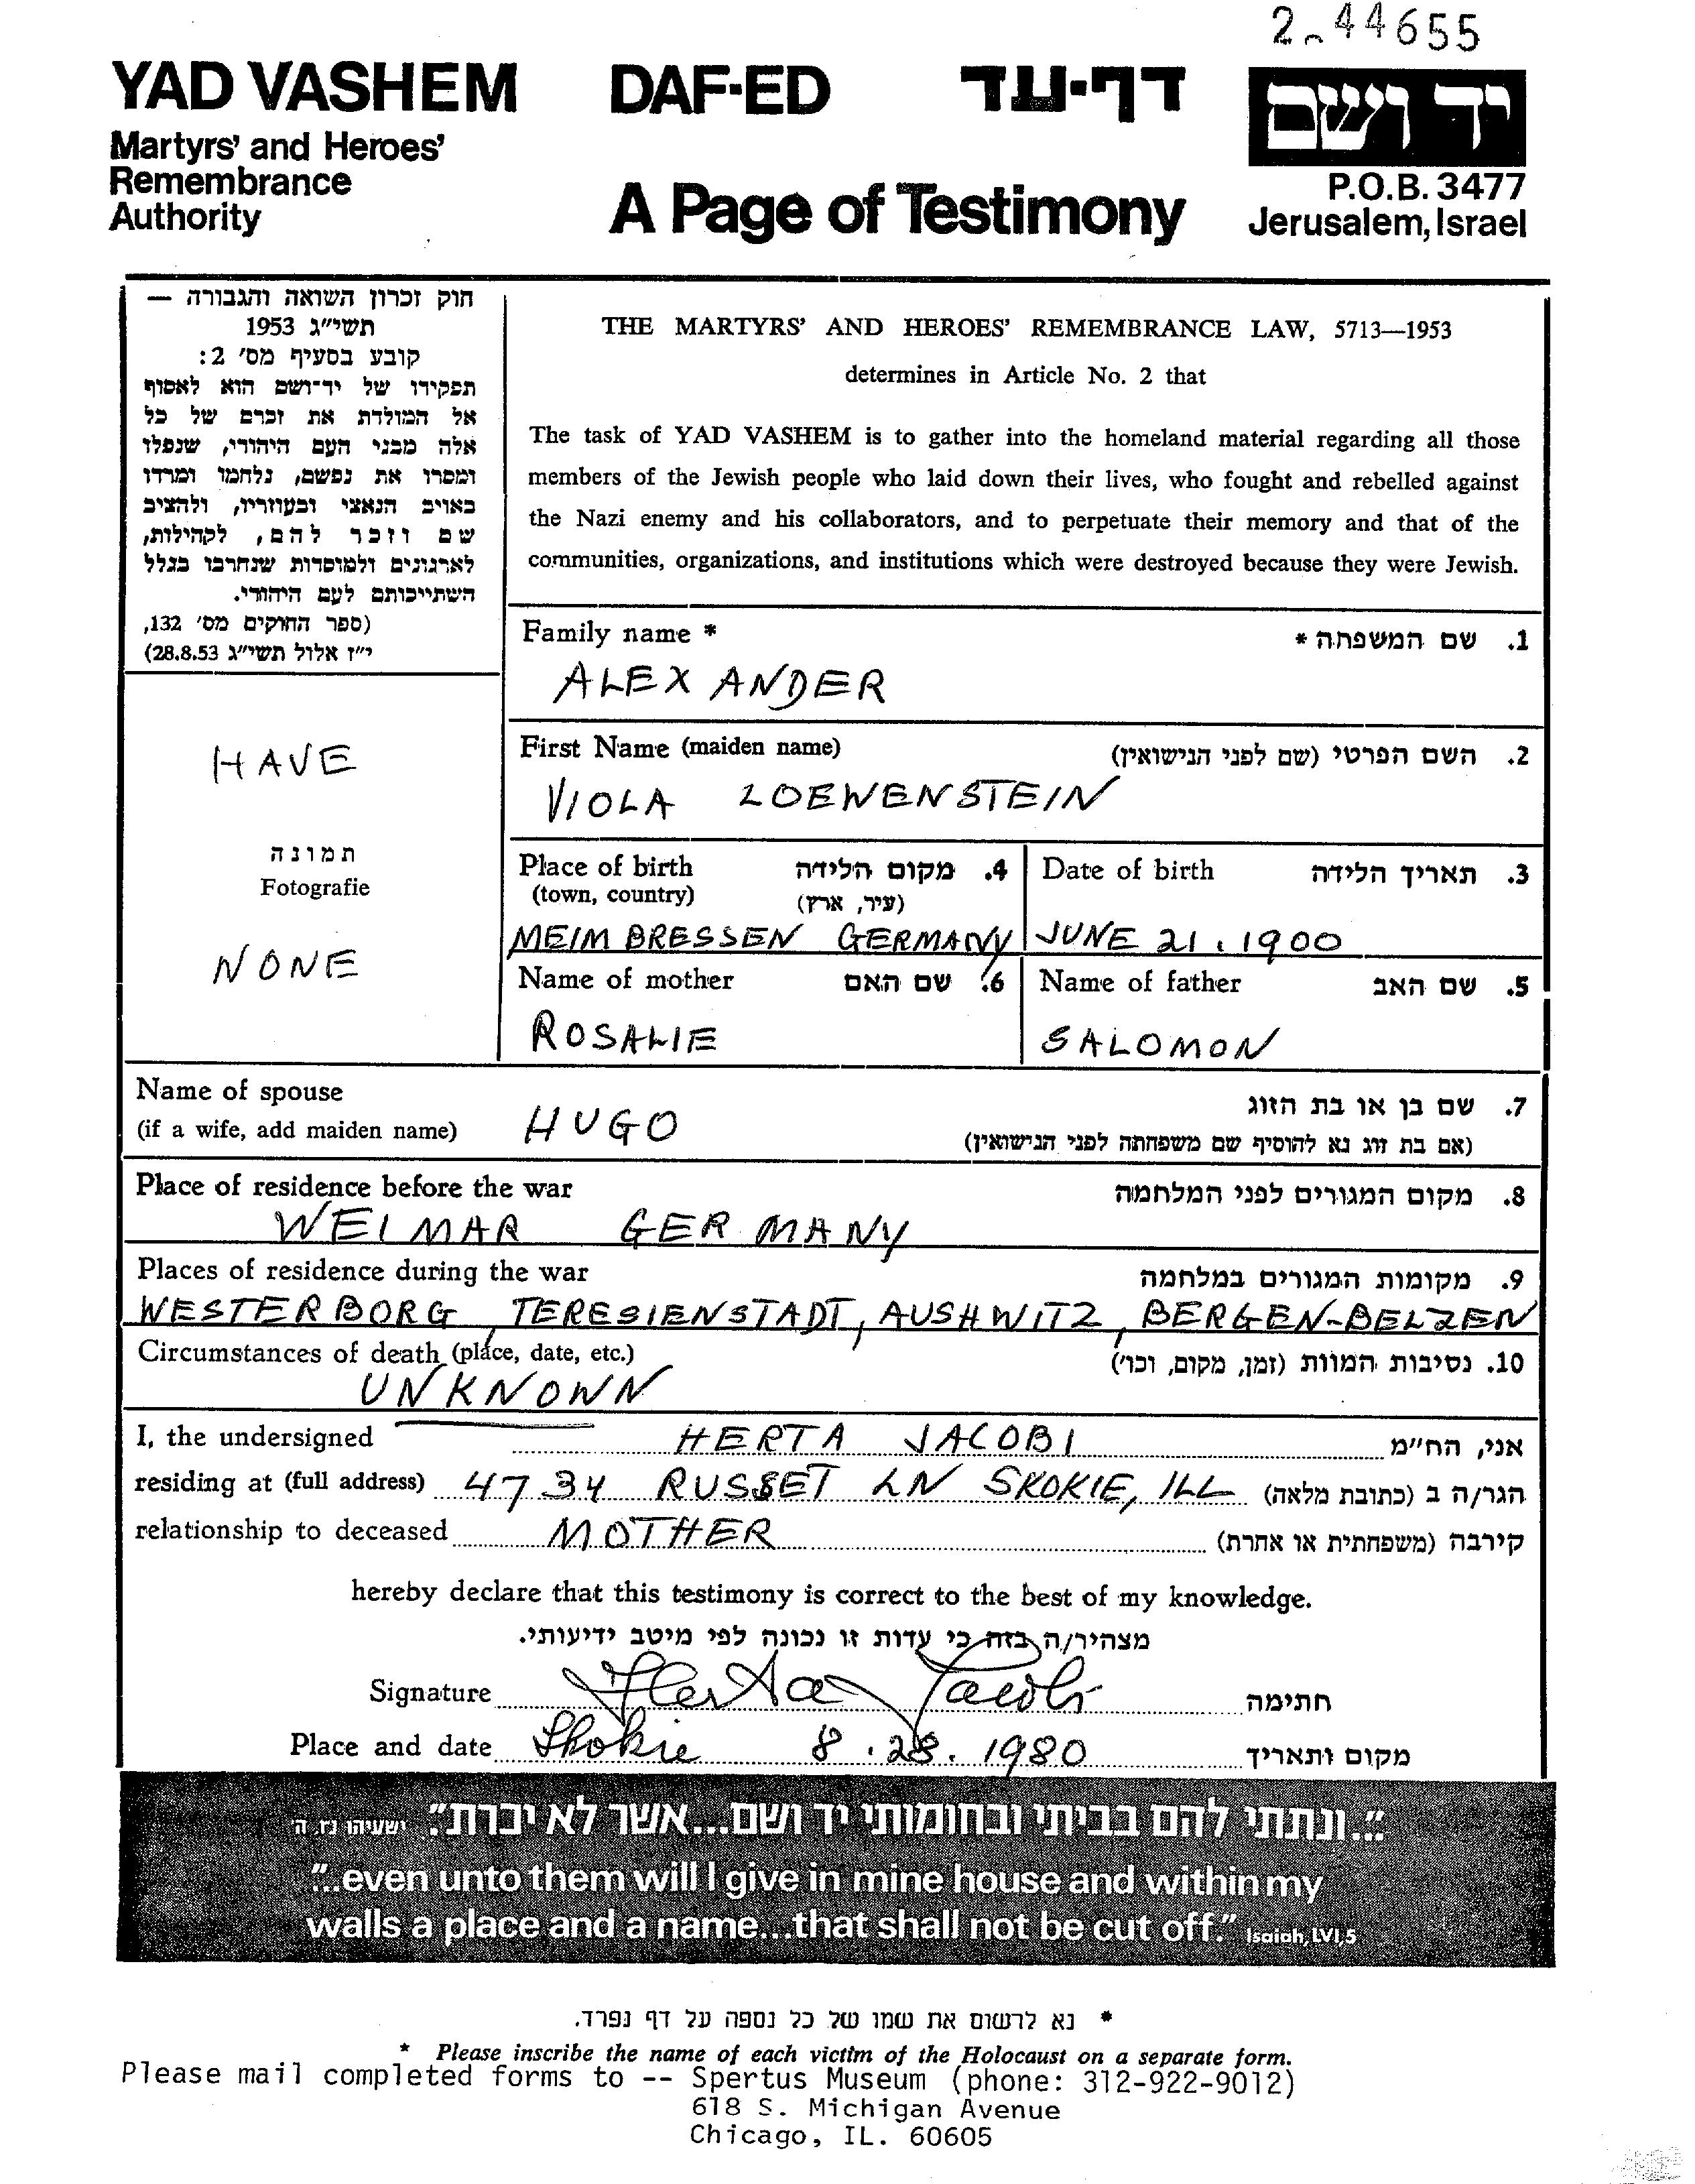 2-44655
YAD VASHEM DAF-ED דף-עד
Martyrs' and Heroes'
Remembrance
Authority
A Page of Testimony
יד ושם
P.O.B. 3477
Jerusalem, Israel
חוק זכרון השואה והגבורה —
תשי״ג 1953
קובע בסעיף מס' 2:
תפקידו של יד-ושם הוא לאסוף
אל המולדת את זכרם של כל
אלה מבני העם היהודי, שנפלו
ומסרו את נפשם, נלחמו ומרדו
באויב הנאצי ובעוזריו, ולהציב
שם וזכר להם, לקהילות,
לארגונים ולמוסדות שנחרבו בגלל
השתייכותם לעם היהודי.
(ספר החוקים מס' 132,
י״ז אלול תשי״ג 28.8.53)
THE MARTYRS' AND HEROES' REMEMBRANCE LAW, 5713—1953
determines in Article No. 2 that
The task of YAD VASHEM is to gather into the homeland material regarding all those
members of the Jewish people who laid down their lives, who fought and rebelled against
the Nazi enemy and his collaborators, and to perpetuate their memory and that of the
communities, organizations, and institutions which were destroyed because they were Jewish.
Family name * 1. שם המשפחה *
ALEXANDER
HAVE
תמונה
Fotografie
NONE
First Name (maiden name) 2. השם הפרטי (שם לפני הנישואין)
VIOLA LOEWENSTEIN
Place of birth 4. מקום הלידה
(town, country) (עיר, ארץ)
MEIMBRESSEN GERMANY
Date of birth 3. תאריך הלידה
JUNE 21. 1900
Name of mother 6. שם האם
ROSALIE
Name of father 5. שם האב
SALOMON
Name of spouse 7. שם בן או בת הזוג
(if a wife, add maiden name) HUGO (אם בת זוג נא להוסיף שם משפחתה לפני הנישואין)
Place of residence before the war 8. מקום המגורים לפני המלחמה
WEIMAR GERMANY
Places of residence during the war 9. מקומות המגורים במלחמה
WESTERBORG, TERESIENSTADT, AUSHWITZ, BERGEN-BELZEN
Circumstances of death (place, date, etc.) 10. נסיבות המוות (זמן, מקום, וכו')
UNKNOWN
I, the undersigned HERTA JACOBI אני, הח״מ
residing at (full address) 4734 RUSSET LN SKOKIE, ILL הגר/ה ב (כתובת מלאה)
relationship to deceased MOTHER קירבה (משפחתית או אחרת)
hereby declare that this testimony is correct to the best of my knowledge.
מצהיר/ה בזה כי עדות זו נכונה לפי מיטב ידיעותי.
Signature Herta Jacobi חתימה
Place and date Skokie 8.28.1980 מקום ותאריך
"...ונתתי להם בביתי ובחומותי יד ושם...אשר לא יכרת". ישעיהו נו, ה'
"...even unto them will I give in mine house and within my
walls a place and a name...that shall not be cut off." Isaiah, LVI,5
* נא לרשום את שמו של כל נספה על דף נפרד.
* Please inscribe the name of each victim of the Holocaust on a separate form.
Please mail completed forms to -- Spertus Museum (phone: 312-922-9012)
618 S. Michigan Avenue
Chicago, IL. 60605